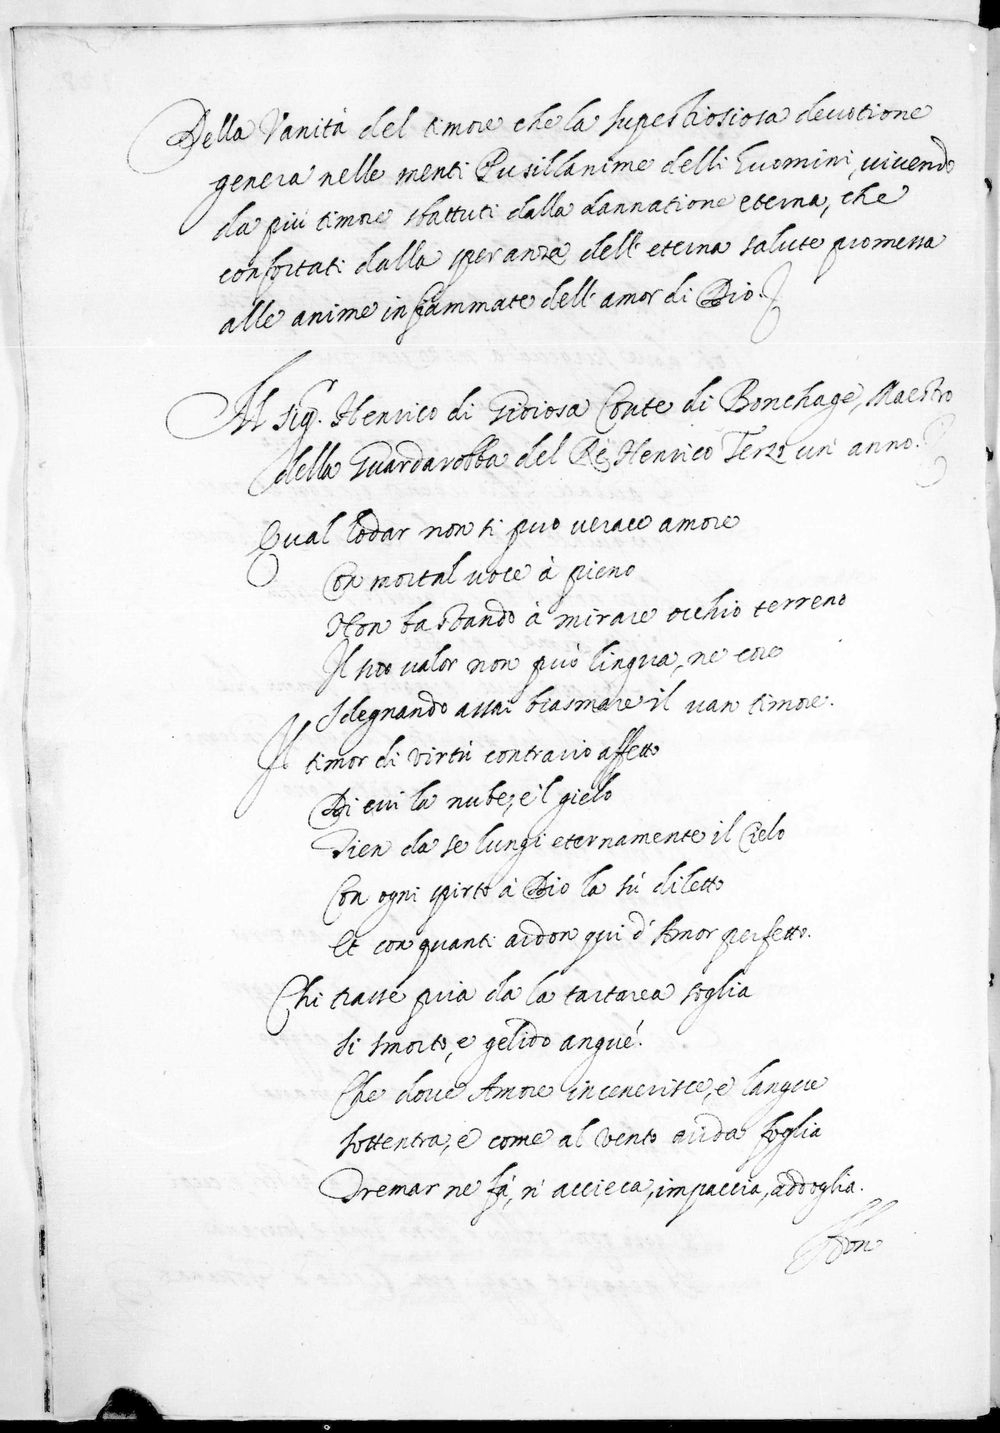 Della Vanità del timore che la superstiosiosa devotione
genera nelle menti Pusillanime delli huomini, vivendo
da più timore sbattuti dalla dannatione eterna, che
confortati dalla speranza dell' eterna salute promessa
alle anime infiammate dell' amor di Dio.
Al sig.r Henrico di Gioiosa Conte di Bonchage, Maestro
della Guardarobba del Rè Henrico Terzo un' anno.
Qual lodar non ti puo verace amore
Con mortal voce à pieno
Non bastando à mirare occhio terreno
Il suo valor non può lingua, ne core
Sdegnando assai biasmare il van timore.
Il timor di virtù contrario affetto
Di cui la nube, e 'l gielo
Tien da se lungi eternamente il Cielo
Con ogni spirto à Dio la sù diletto
Et con quanti ardon qui d' Amor perfetto.
Chi trasse pria da la tartarea soglia
Si smorto, e gelido angue.
Che dove Amore incenerisce, e langue
Sottentra, e come al vento arida foglia
Tremar ne fà, n' accieca, impaccia, addoglia.
Non